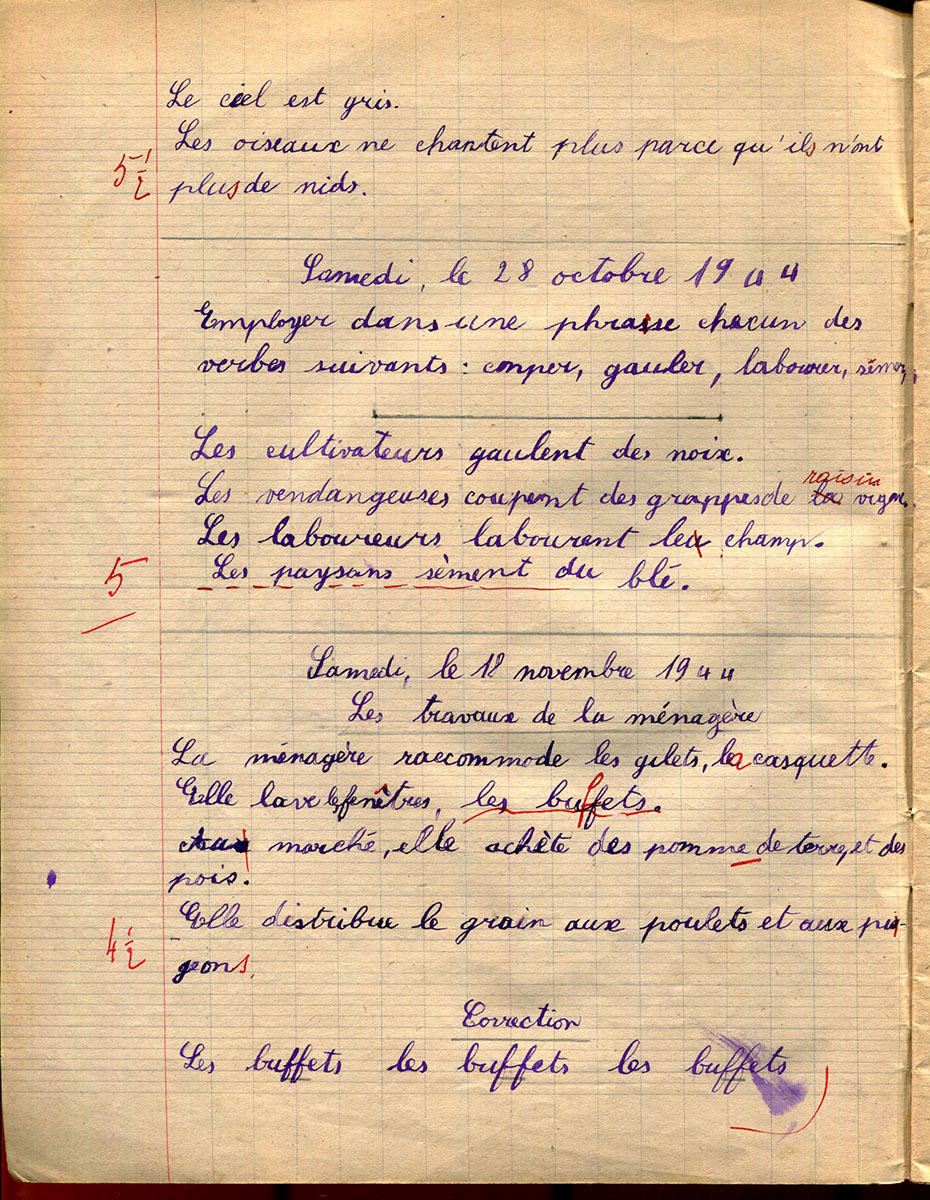 Le ciel est gris.
Les oiseaux ne chantent plus parce qu'ils n'ont
5 1/2
plus de nids.
Samedi, le 28 octobre 1944
Employer dans une phrase chacun des
verbes suivants : couper, gauler, labourer, semer,
Les cultivateurs gaulent des noix.
raisin
Les vendangeuses coupent des grappes de la vigne.
Les laboureurs labourent leu champ.
Les paysans sèment du blé.
5
Samedi, le 18 novembre 1944
Les travaux de la ménagère
La ménagère raccommode les gilets, la casquette.
Elle lave les fenêtres, les buffets.
Au marché, elle achète des pomme de terre, et des
pois.
Elle distribue le grain aux poulets et aux pi-
4 1/2
geons.
Correction
Les buffets les buffets les buffets